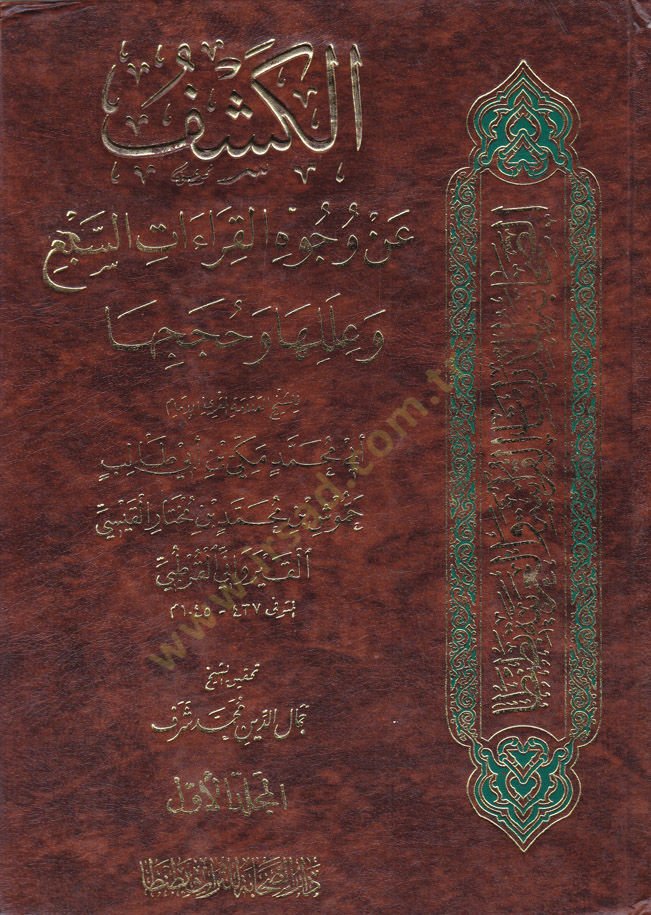 الكَشْفُ
عَنْ وُجُوهِ القِرَاءَاتِ السَّبْعِ
وَعِلَلِهَا وَحُجَجِهَا
للشيخ العلامة المقرئ الإمام
أبي مُحَمَّدٍ مَكِّي بْنِ أَبِي طَالِبٍ
حَمُّوش بْنِ مُحَمَّدِ بْنِ مُخْتَارٍ القَيْسِيّ
القَيْرَوَانِي القُرْطُبِيّ
المتوفى ٤٣٧ - ١٠٤٥م
تحقيق الشيخ
جمال الدين محمد شرف
المجلد الأول
دار الصحابة للتراث بطنطا
www.irsad.com.t